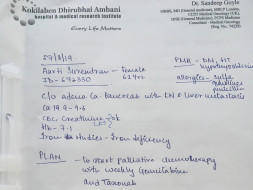 Kokilaben Dhirubhai Ambani
hospital & medical research institute
Every Life Matters
Dr. Sandeep Goyle
Aarti Surendran - Female
ID - 696330 61 yrs
PMR - DM, HT
hypothyroidism
allergies - sulfa
penicillin
c/o adeno Ca - Pancreas with LN & liver metastasis
Ca 19.9 - 9.6
CBC, Creatinine, ok
Hb - 7.1
Iron studies - Iron deficiency
PLAN - To start palliative chemotherapy
with weekly Gemcitabine
and Taxonab